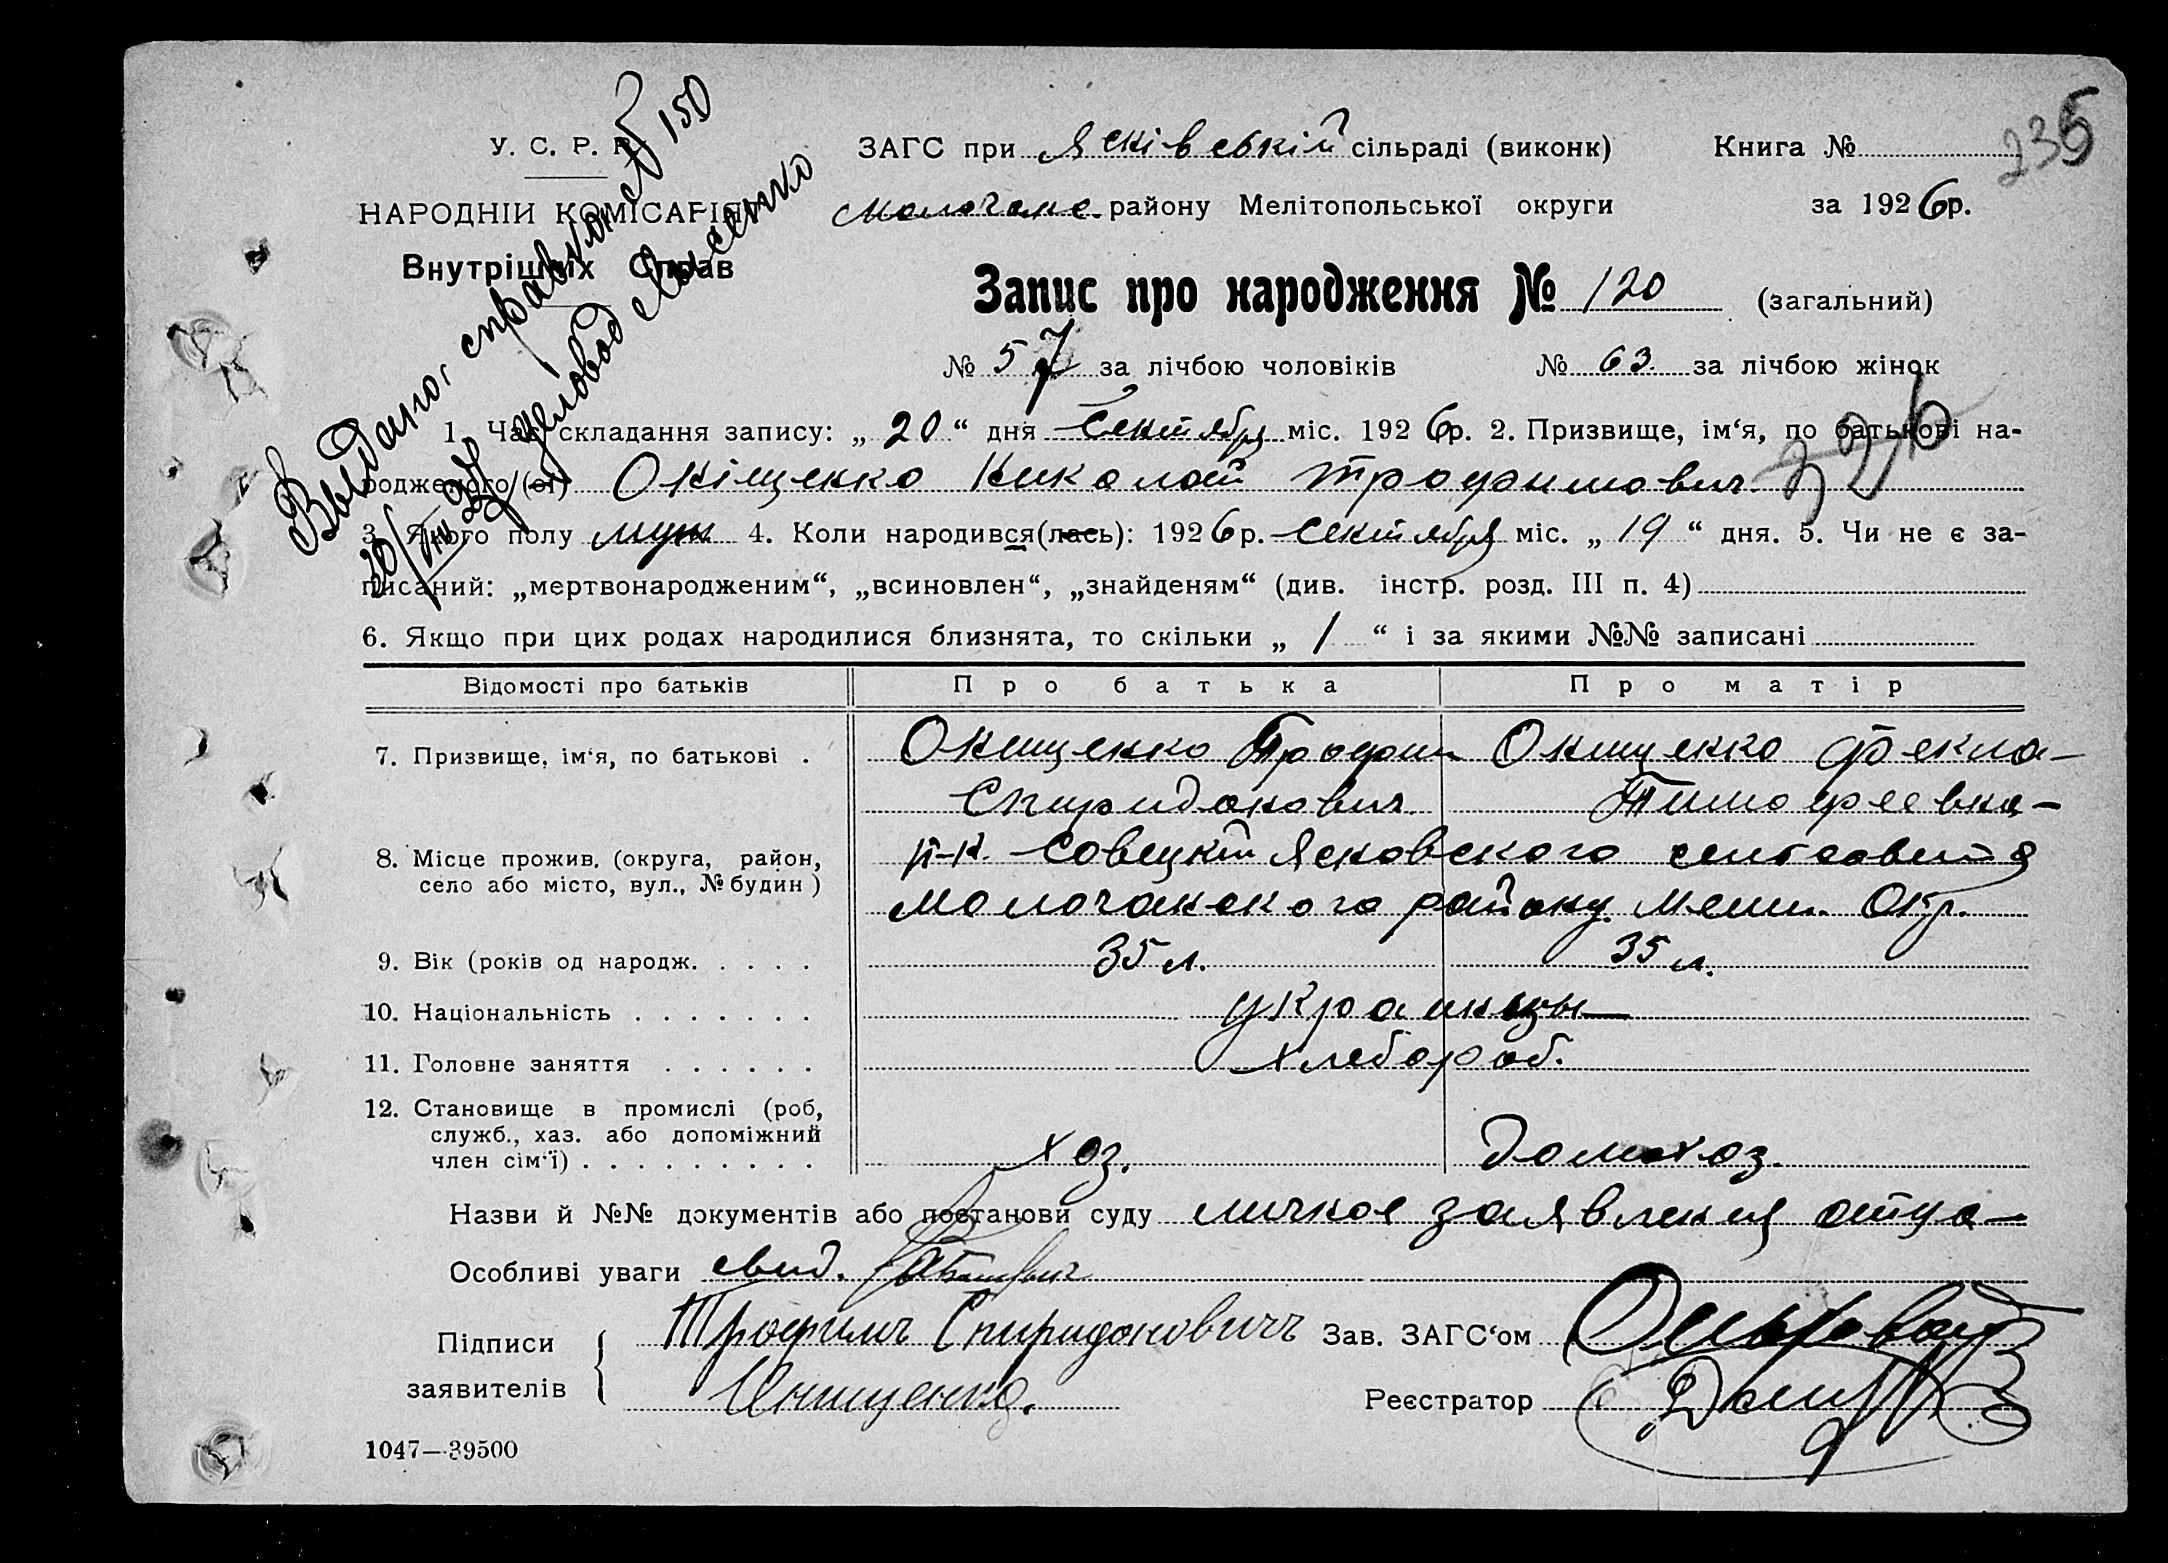 У. С. Р. Р.
НАРОДНІЙ КОМІСАРІЯТ
Внутрішніх Справ
Выдано справкою № 150
деловод Лысенко
ЗАГС при Яснівській сільраді (виконк) Книга №
235
Молочанс. району Мелітопольської округи за 1926 р.
Запис про народження № 120 (загальний)
№ 57 за лічбою чоловіків № 63 за лічбою жінок
1. Час складання запису: „20“ дня Сентября міс. 1926 р. 2. Призвище, ім‘я, по батькові на-
родженого/(ої) Оніщенко Николай Трофимович
326
3. Якого полу муж 4. Коли народився(лась): 1926 р. Сентября міс. „19“ дня. 5. Чи не є за-
писаний: „мертвонародженим“, „всиновлен“, „знайденям“ (див. інстр. розд. III п. 4)
6. Якщо при цих родах народилися близнята, то скільки „ / “ і за якими №№ записані
Відомості про батьків Про батька Про матір
7. Призвище, ім‘я, по батькові . Онищенко Трофим Онищенко Фекла
Спиридонович Тимофеевна
8. Місце прожив. (округа, район,
село або місто, вул., № будин) Ясновского сельсовета
Молочанского району Мелит. Окр.
9. Вік (років од народж. . . . . 35 л. 35 л.
10. Національність . . . . . . . украинцы
11. Головне заняття . . . . . . хлебороб.
12. Становище в промислі (роб,
служб., хаз. або допоміжний
член сім‘ї) . . . . . . . . . хоз. домохоз.
Назви й №№ документів або постанови суду личное заявления отца
Особливі уваги свид.
Підписи Трофимъ Спиридоновичъ Зав. ЗАГС‘ом
заявителів Онищенко. Реєстратор
1047—39500